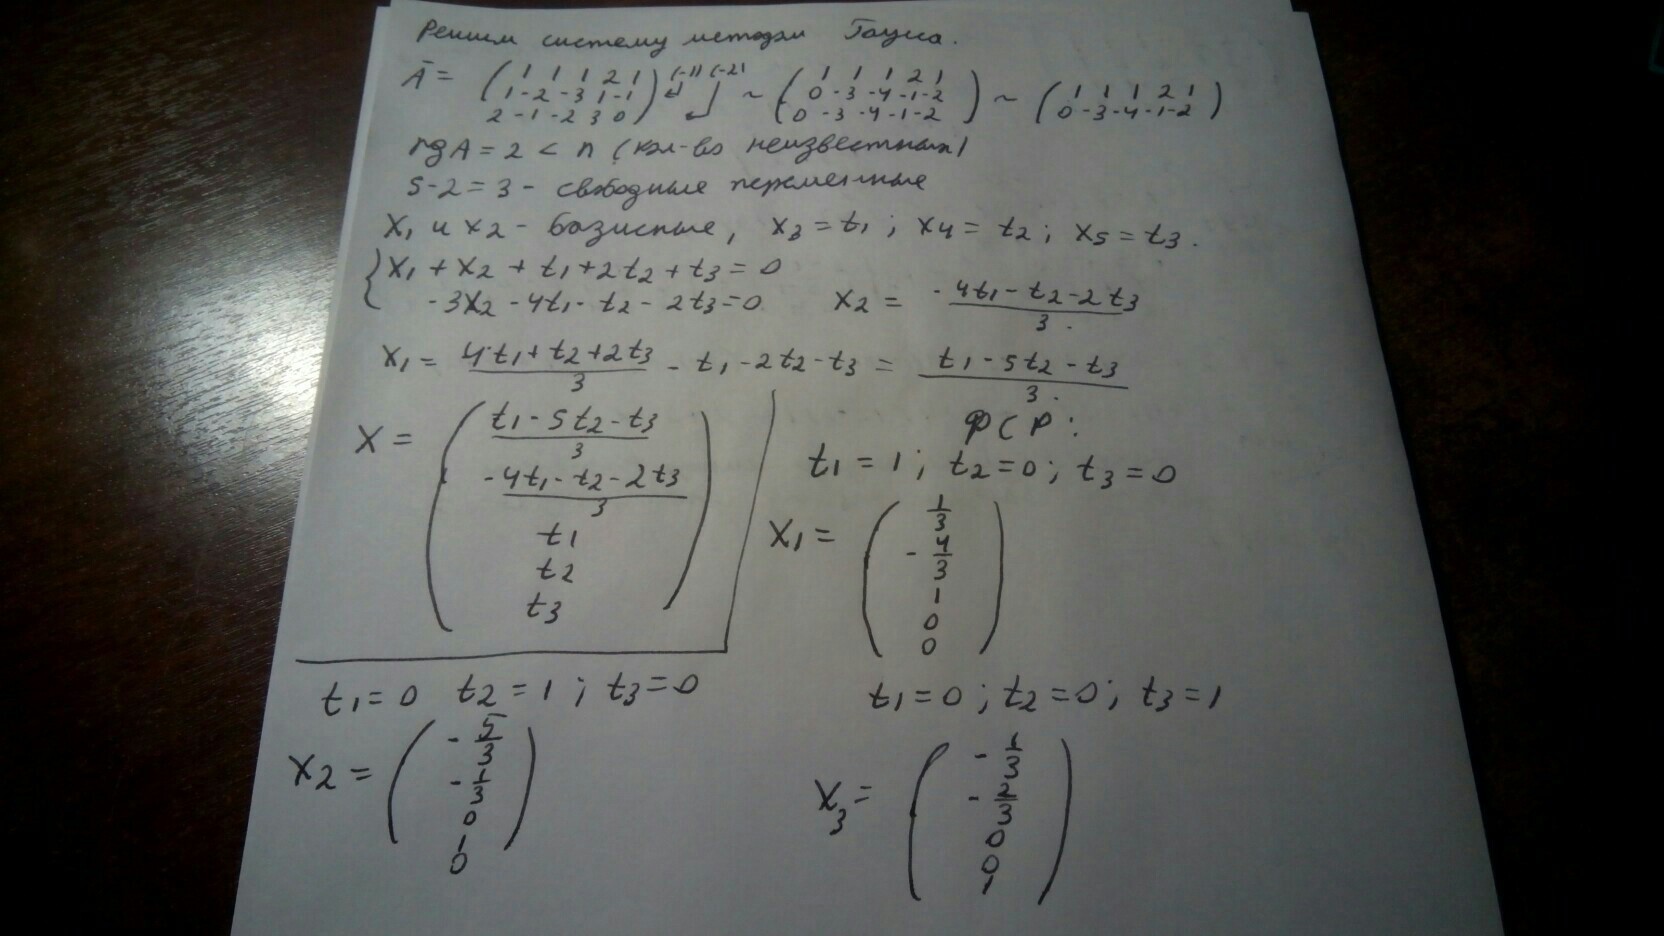 Решим систему методом Гаусса.
Ā = ( 1 1 1 2 1 ) (-1) (-2) ~ ( 1 1 1 2 1 ) ~ ( 1 1 1 2 1 )
1 -2 -3 1 -1 0 -3 -4 -1 -2 0 -3 -4 -1 -2
2 -1 -2 3 0 0 -3 -4 -1 -2
rgA = 2 < n (кол-во неизвестных)
5-2=3 - свободные переменные
X1 и x2 - базисные, x3 = t1; x4 = t2; x5 = t3.
{ X1 + X2 + t1 + 2t2 + t3 = 0
-3X2 - 4t1 - t2 - 2t3 = 0 X2 = (-4t1 - t2 - 2t3)/3.
X1 = (4t1 + t2 + 2t3)/3 - t1 - 2t2 - t3 = (t1 - 5t2 - t3)/3.
X = ( (t1 - 5t2 - t3)/3
(-4t1 - t2 - 2t3)/3
t1
t2
t3 )
ФСР:
t1 = 1; t2 = 0; t3 = 0
X1 = ( 1/3
- 4/3
1
0
0 )
t1 = 0 t2 = 1; t3 = 0
X2 = ( - 5/3
- 1/3
0
1
0 )
t1 = 0; t2 = 0; t3 = 1
X3 = ( - 1/3
- 2/3
0
0
1 )